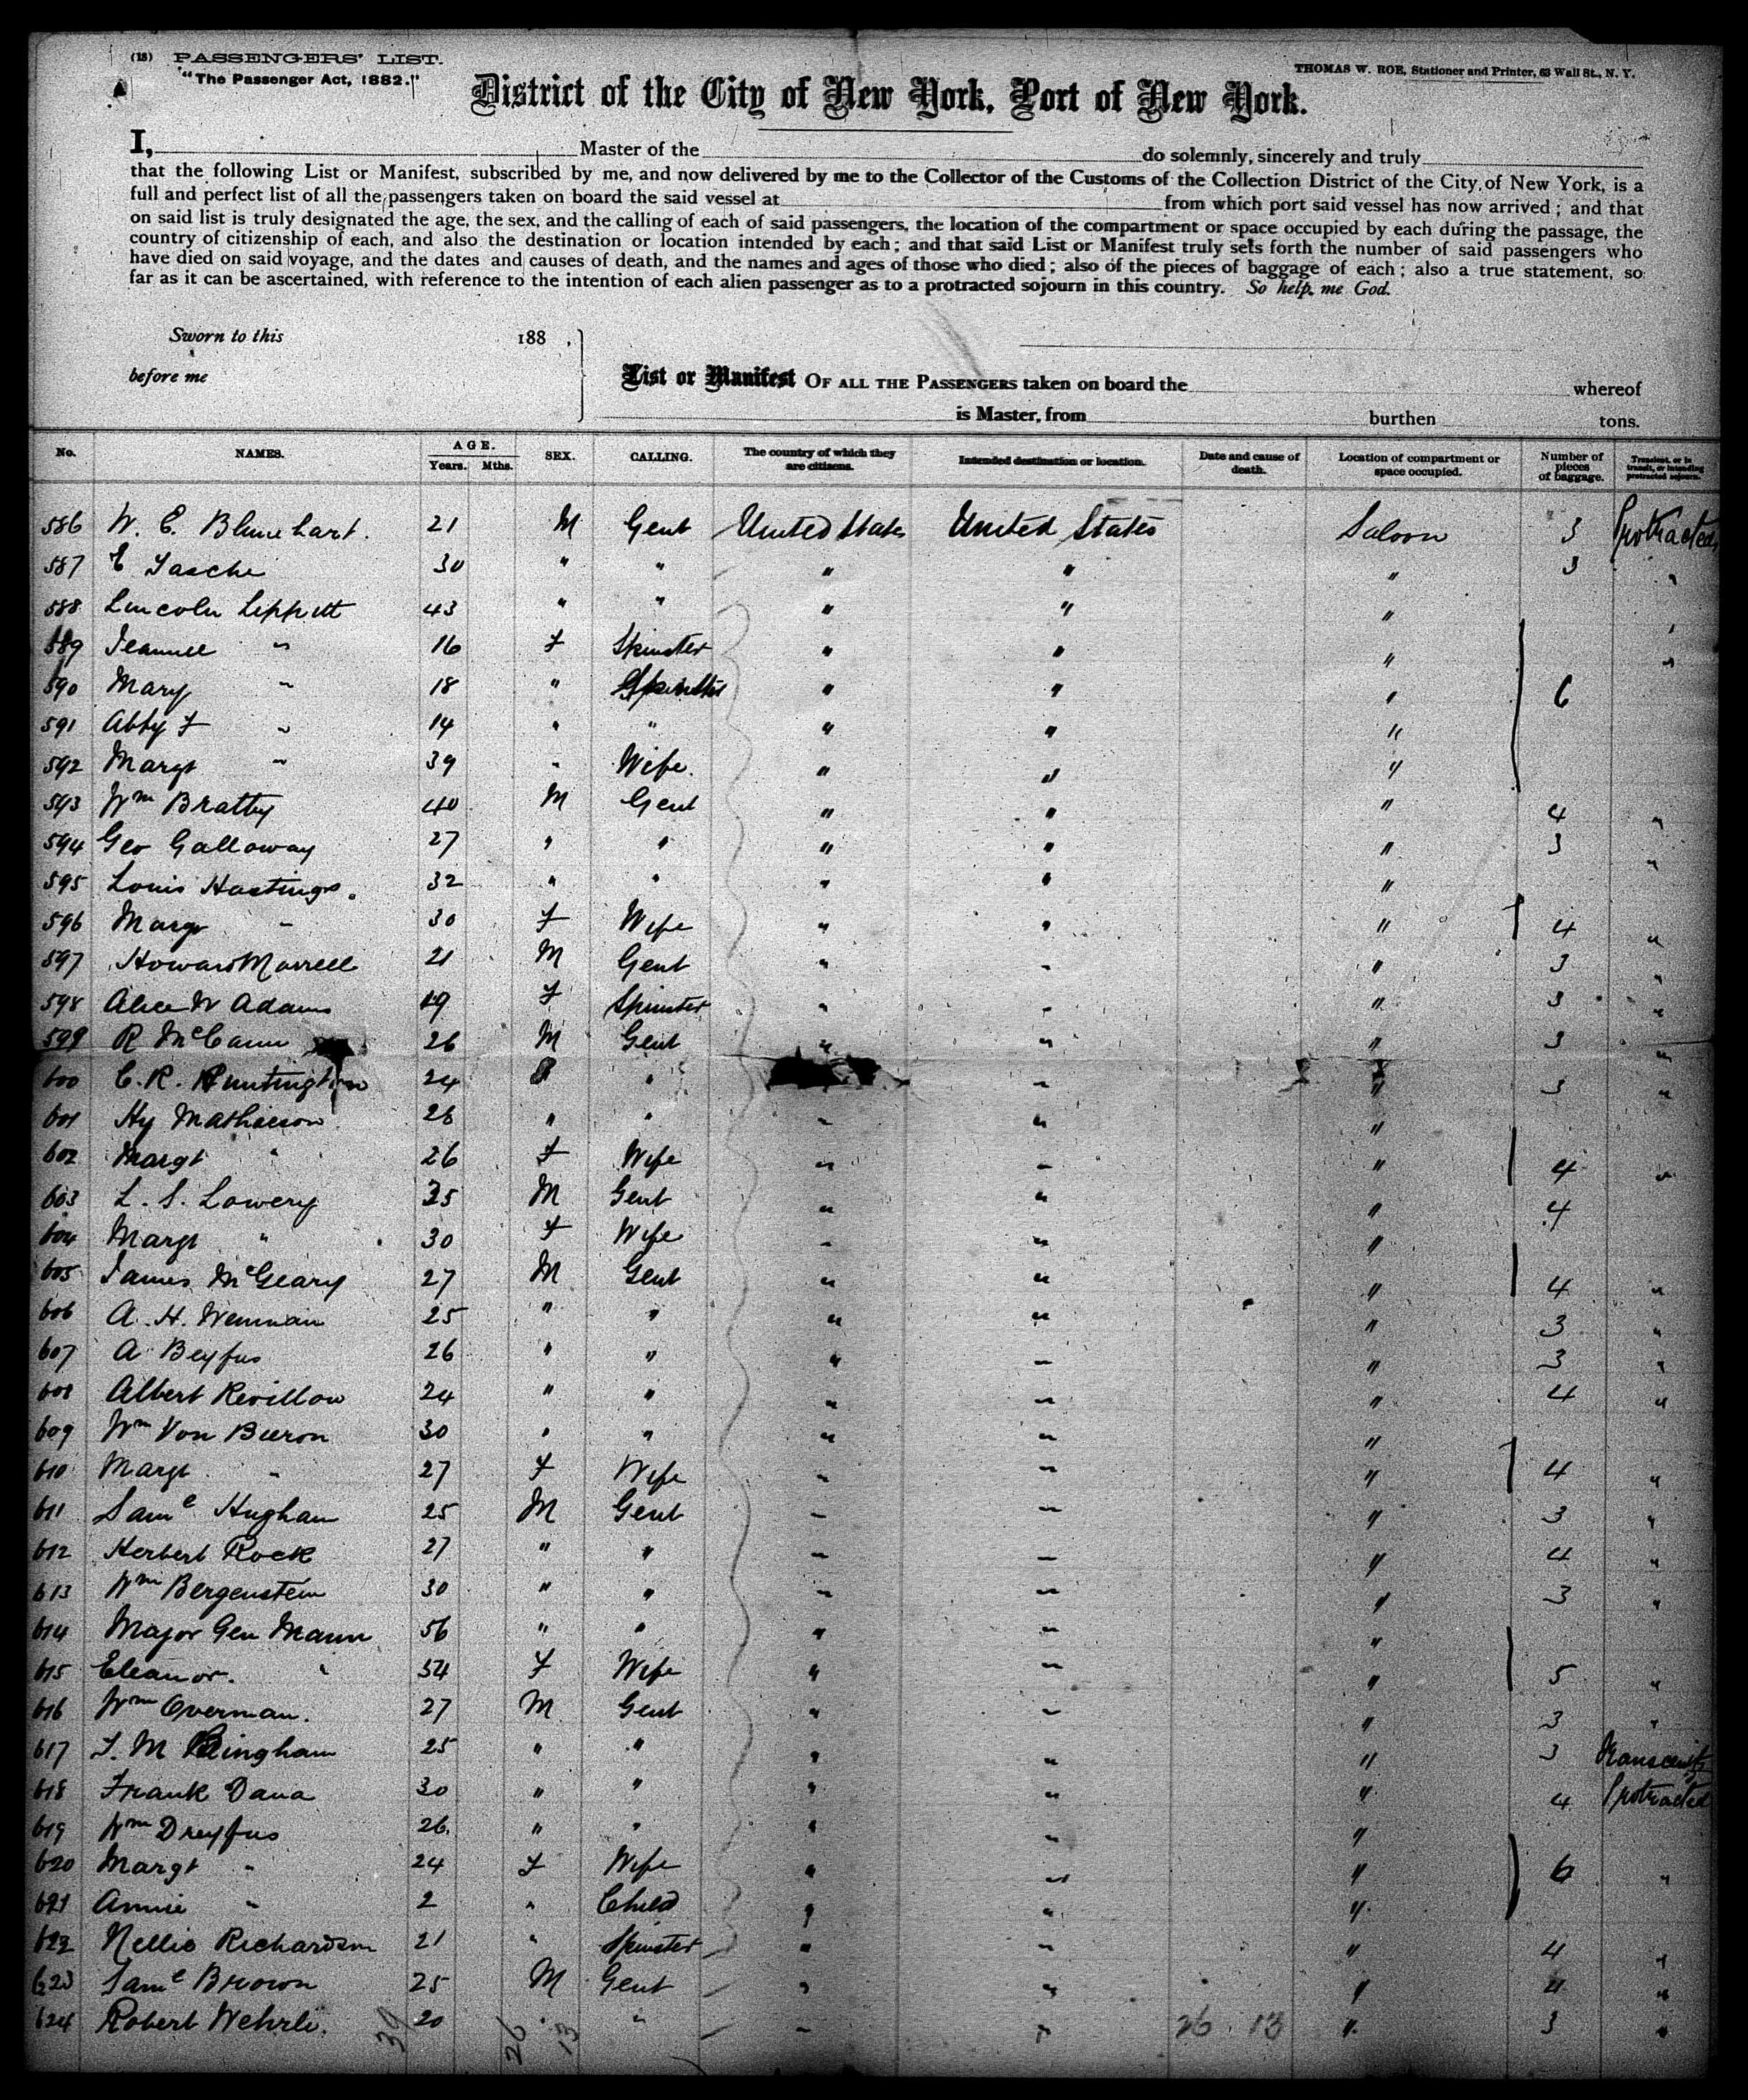 (13) PASSENGERS' LIST.
"The Passenger Act, 1882."
THOMAS W. ROE, Stationer and Printer, 63 Wall St., N. Y.
District of the City of New York, Port of New York.
I, Master of the do solemnly, sincerely and truly
that the following List or Manifest, subscribed by me, and now delivered by me to the Collector of the Customs of the Collection District of the City of New York, is a
full and perfect list of all the passengers taken on board the said vessel at from which port said vessel has now arrived; and that
on said list is truly designated the age, the sex, and the calling of each of said passengers, the location of the compartment or space occupied by each during the passage, the
country of citizenship of each, and also the destination or location intended by each; and that said List or Manifest truly sets forth the number of said passengers who
have died on said voyage, and the dates and causes of death, and the names and ages of those who died; also of the pieces of baggage of each; also a true statement, so
far as it can be ascertained, with reference to the intention of each alien passenger as to a protracted sojourn in this country. So help me God.
Sworn to this 188 ,
before me
List or Manifest OF ALL THE PASSENGERS taken on board the whereof
is Master, from burthen tons.
No. NAMES. AGE. Years. Mths. SEX. CALLING. The country of which they are citizens. Intended destination or location. Date and cause of death. Location of compartment or space occupied. Number of pieces of baggage. Transient, or in transit, or intending protracted sojourn.
586 W. E. 21 M Gent United States United States Saloon 3 Protracted
587 E Tasche 30 " " " " " 3 "
588 Lincoln Lippitt 43 " " " " " "
589 " 16 F Spinster " " " "
590 Mary " 18 " Spinster " " " 6
591 Abby F " 14 " " " " "
592 Margt " 39 " Wife. " " "
593 Wm Bratty 40 M Gent " " " 4 "
594 Geo Galloway 27 " " " " " 3 "
595 Louis Hastings. 32 " " " " "
596 Margt " 30 F Wife " " " 4 "
597 Howard Morrell 21 M Gent " " " 3 "
598 Alice W Adams 19 F Spinster " " " 3 "
599 R McCann 26 M Gent " " " 3 "
600 C. R. Huntington 24 " " " 3 "
601 Hy Mathieson 26 " " " " "
602 Margt " 26 F Wife " " " 4 "
603 L. S. Lowery 35 M Gent " " " 4
604 Margt " 30 F Wife " " "
605 James McGeary 27 M Gent " " " 4 "
606 A. H. Wenman 25 " " " " " 3 "
607 A Beyfus 26 " " " " " 3 "
608 Albert Revillow 24 " " " " " 4 "
609 Wm Von Beeron 30 " " " " "
610 Margt " 27 F Wife " " " 4 "
611 Saml Hughan 25 M Gent " " " 3 "
612 Herbert Rock 27 " " " " " 4 "
613 Wm Bergenstein 30 " " " " " 3 "
614 Major Gen Mann 56 " " " " "
615 Eleanor. " 54 F Wife " " " 5 "
616 Wm Overman. 27 M Gent " " " 3 "
617 T. M Bingham 25 " " " " " 3
618 Frank Dana 30 " " " " " 4 Protracted
619 Wm Dreyfus 26. " " " " "
620 Margt " 24 F Wife " " " 6 "
621 Annie " 2 " Child " " "
622 Nellie Richardson 21 " Spinster " " " 4 "
623 Saml Brown 25 M Gent " " " 4 "
624 Robert Wehrli. 20 " " " " " 3 "
39 26 13 26 13